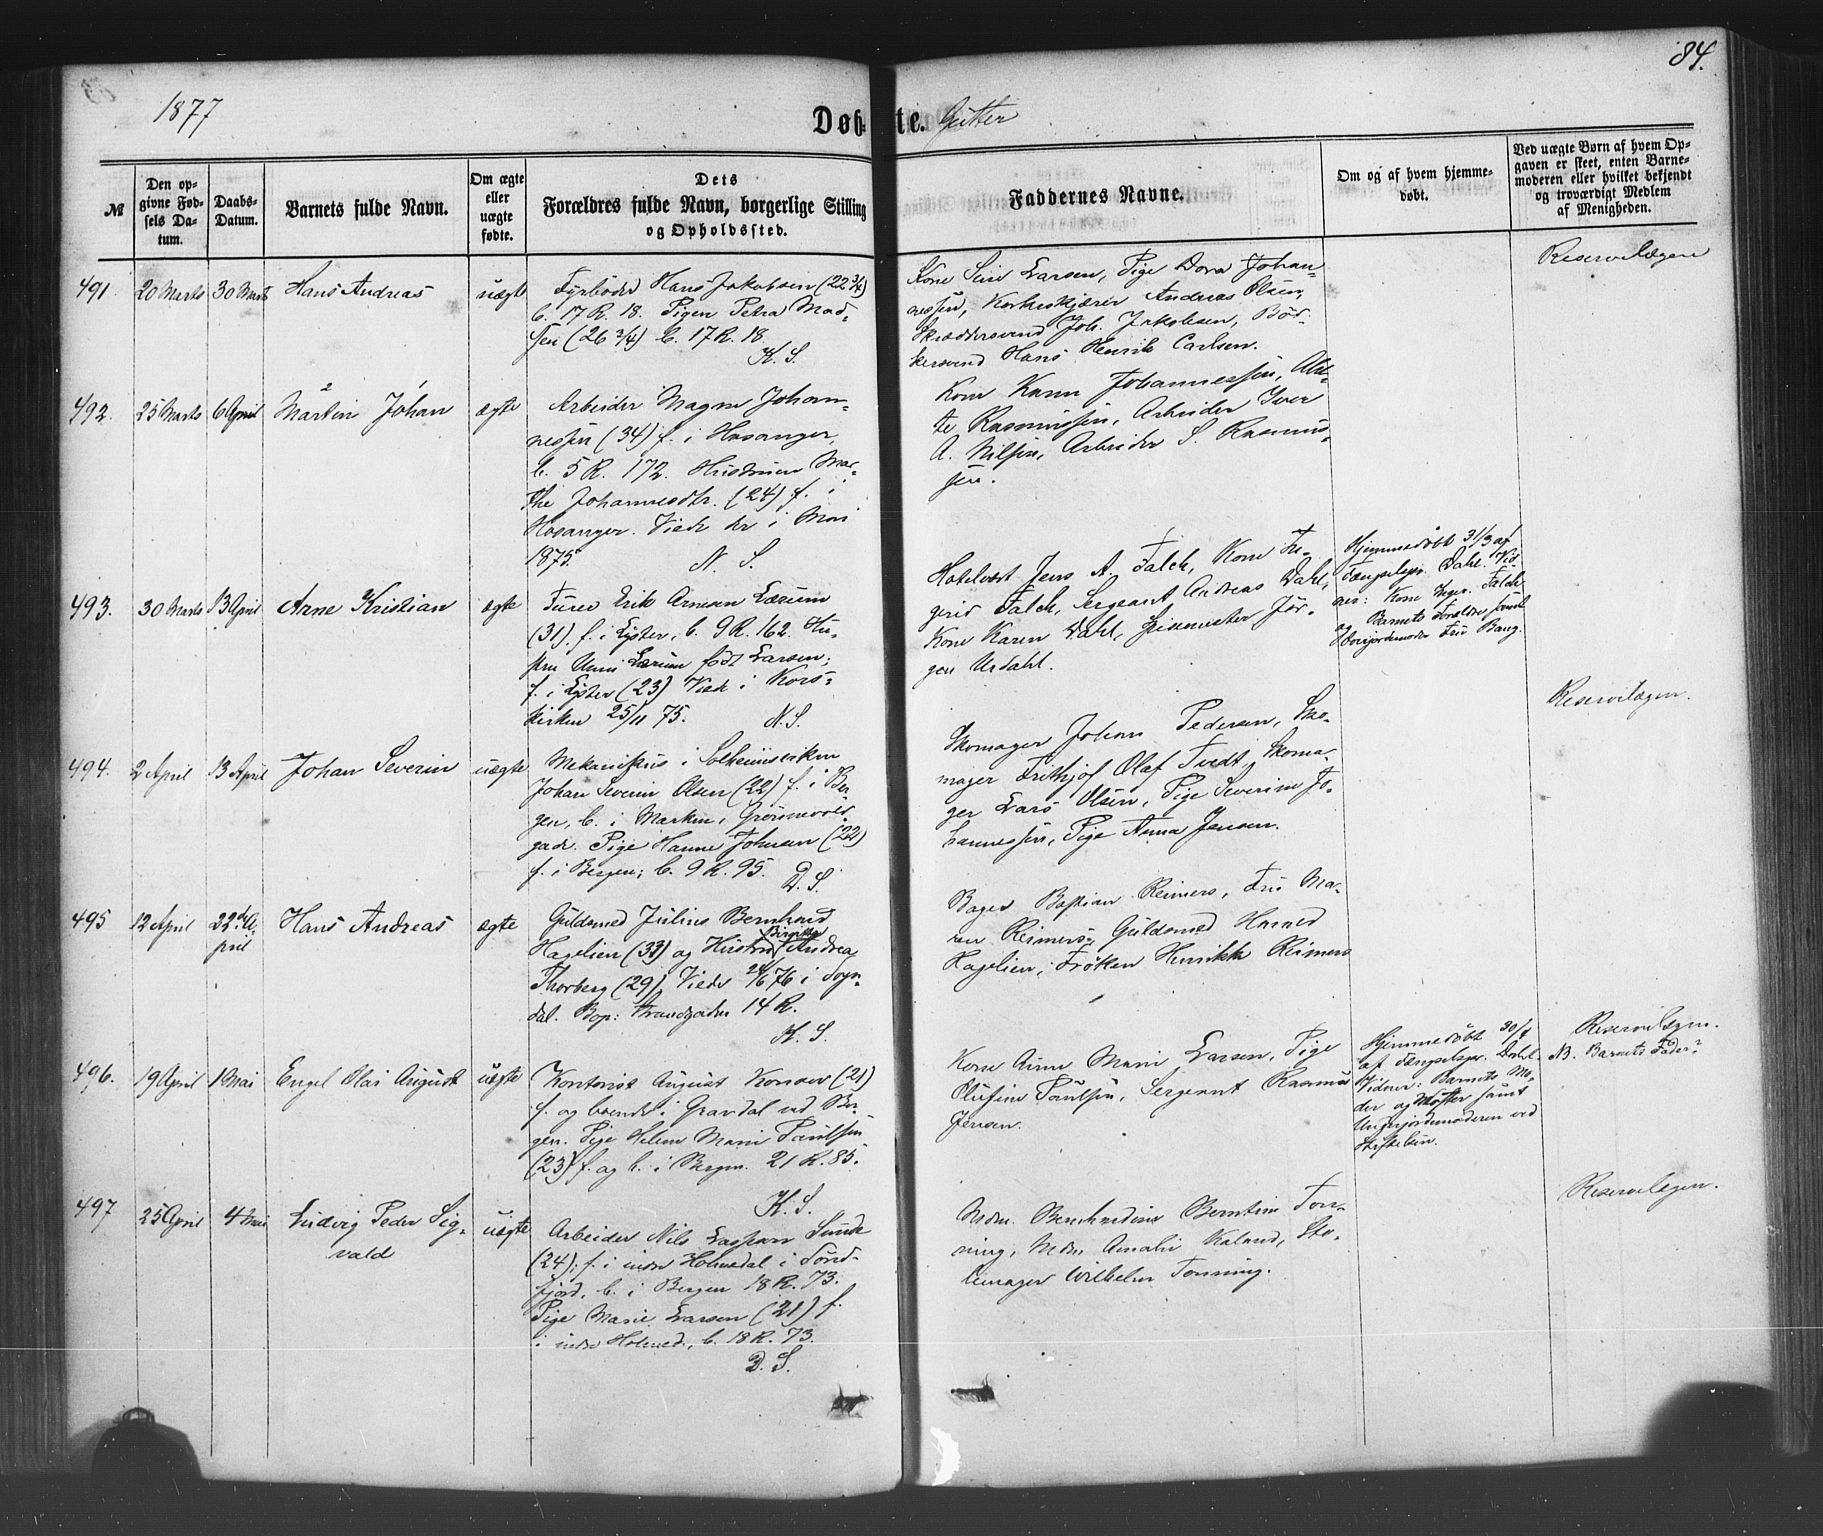 84.
1877
Døbte. Gutter
№
Den opgivne Fødsels Datum.
Daabs-Datum.
Barnets fulde Navn.
Om ægte eller uægte fødte.
Dets Forældres fulde Navn, borgerlige Stilling og Opholdssted.
Faddernes Navne.
Om og af hvem hjemmedøbt.
Ved uægte Børn af hvem Opgaven er skeet, enten Barnemoderen eller hvilket bekjendt og troværdigt Medlem af Menigheden.
491. 20 Marts 30 Marts Hans Andreas uægte
Fyrbøder Hans Jakobsen (22 3/4)
b. 17 R. 18. Pigen Petra Mad-
sen (26 3/4) b. 17 R. 18
K. S.
Kone Larsen, Pige Dora Johan-
nessen, Andreas Olsen,
Skræddersvend Joh. Jakobsen, Bød-
kersvend Hans Henrik Carlsen.
Reservelægen
492. 25 Marts 6 April Martin Johan ægte
Arbeider Magne Johan-
nessen (34) f. i Hosanger,
b. 5 R. 172. Hustruen Mar-
the Johannesdtr. (24) f. i
Hosanger. Viede der i Mai
1875. N. S.
Kone Johannessen,
Rasmussen, Arbeider Iver
A. Nilsen, Arbeider S. Rasmus-
sen.
493. 30 Marts 13 April Arne Kristian ægte
Furer Erik Arnesen Lærum
(31), f. i Lyster, b. 9 R. 162. Hu-
stru Unni Lærum født Larsen,
f. i Lyster (23) Viede i Kors-
kirken 25/11 75. N. S.
Hotelvært Jens A. Falch, Kone In-
gerid Falch, Sergeant Andreas Dahl,
Kone Karen Dahl, Jør-
gen Urdahl.
Hjemmedøbt 31/3 af
Fængselspr. Dahl. Vid-
ner: Kone Inger. Falch
og Barnets Forældre samt
Bang.
494. 2 April 13 April Johan Severin uægte
Mekanikus i Solheimsviken
Johan Severin Olsen (22) f. i Ber-
gen, b. i Marken, Grønevolds
gade. Pige Hanne Johnsen (22)
f. i Bergen, b. 9 R. 95. D. S.
Skomager Johan Pedersen, Sko-
mager Frithjof Olaf Tvedt, Skoma-
ger Lars Olsen, Pige Severine Jo-
hannessen, Pige Anna Jensen.
Reservelægen.
495 12 April 22de A-
pril Hans Andreas ægte
Guldsmed Julius Bernhard
Hagelien (33) og Hustru Birgitte Andrea
Thorberg (29). Viede 24/6 76 i Sogn-
dal. Bop: Strandgaden 14 R.
K. S.
Bager Bastian Reimers, Fru Ma-
ren Reimers, Guldsmed
Hagelien, Frøken Henrikke Reimers
496. 19 April 1 Mai Engel Olai August uægte
Kontorist August Konow (21)
f. og boende i Gravdal ved Ber-
gen. Pige Helene Marie Paulsen
(23) f. og b. i Bergen. 21 R. 85.
K. S.
Kone Anne Marie Larsen, Pige
Olufine Paulsen, Sergeant Rasmus
Jensen.
Hjemmedøbt 30/4
af Fængselspr. Dahl.
Vidner: Barnets Mo-
der og Moster samt
Underjordemoderen ved
Stiftelsen.
Reservelægen.
NB. Barnets Fader?
497 25 April 4 Mai Ludvig Peder Sig-
vald uægte
Arbeider Nils Lassesen Sunde
(24), f. i indre Holmedal i Sønd-
fjord, b. i Bergen 18 R. 73.
Pige Marie Larsen (21) f.
i indre Holmed., b. 18 R. 73.
D. S.
Mdm. Bernhardine Berntine Ton-
ning, Mdm Amalie Kaland, Sto-
lemager Wilhelm Tonning.
Reservelægen.